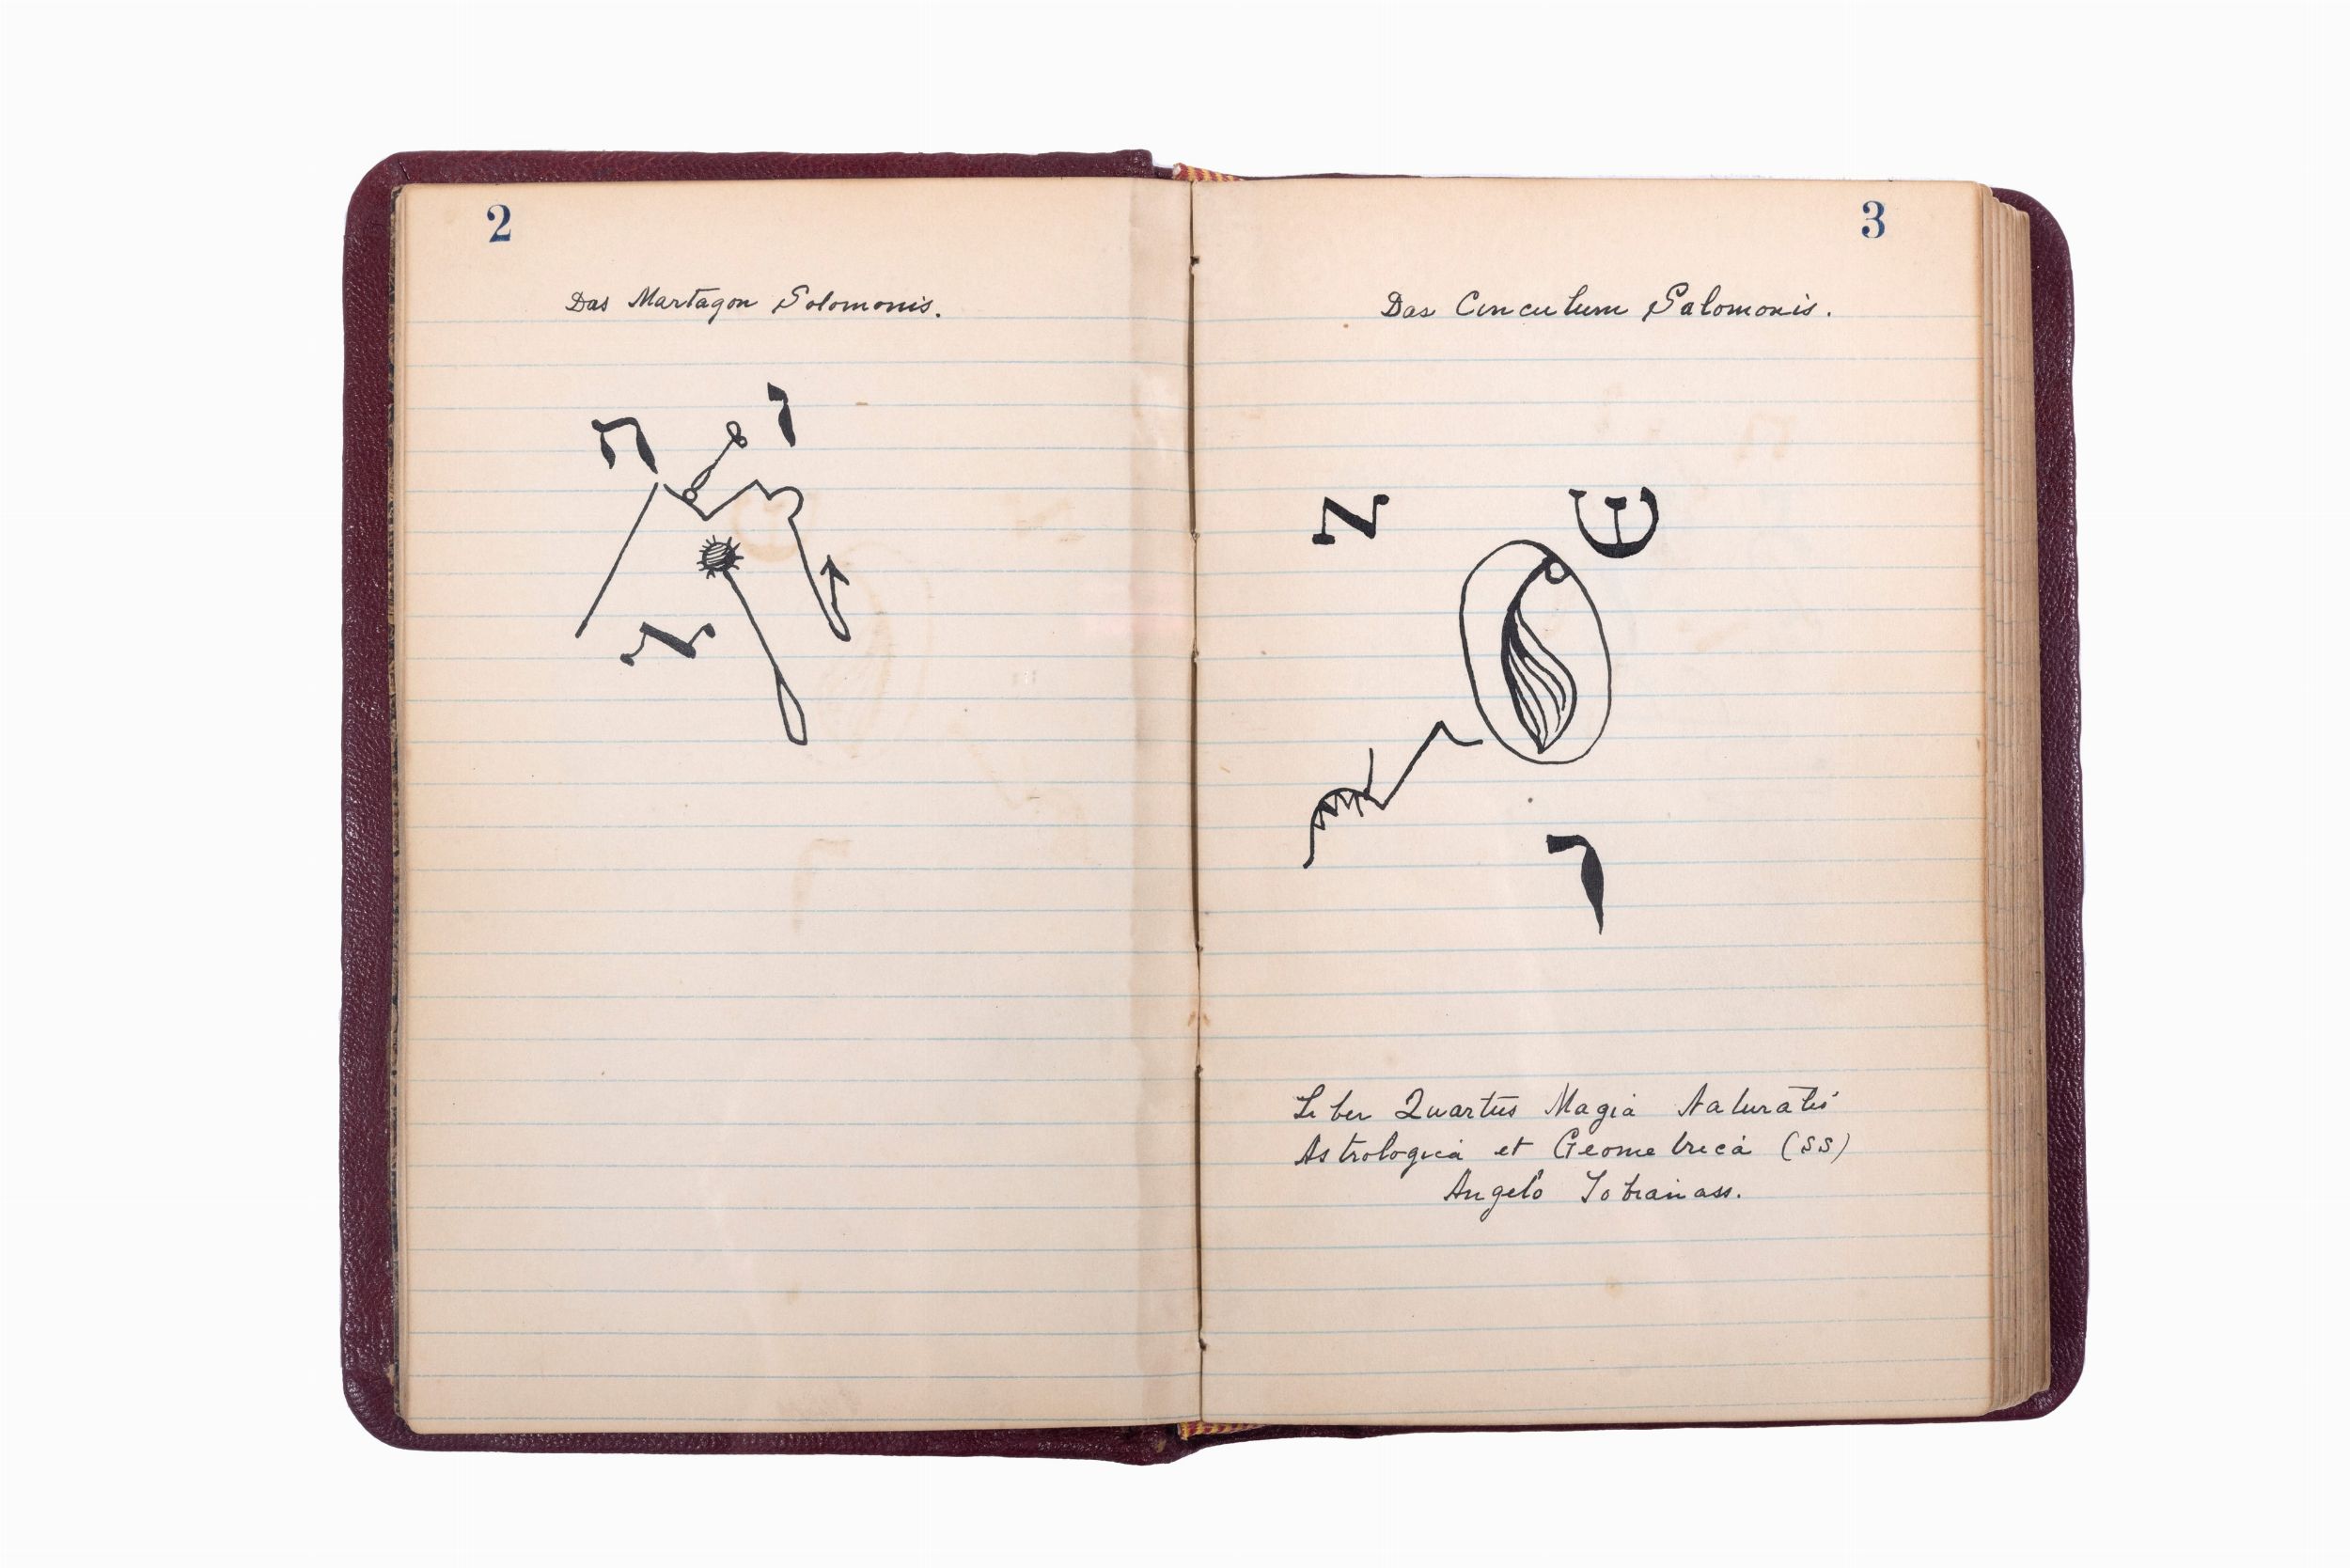 2
Das Martagon Solomonis.
3
Das Cinculum Salomonis.
Liber Quartus Magia Naturalis
Astrologica et Geometrica (SS)
Angelo